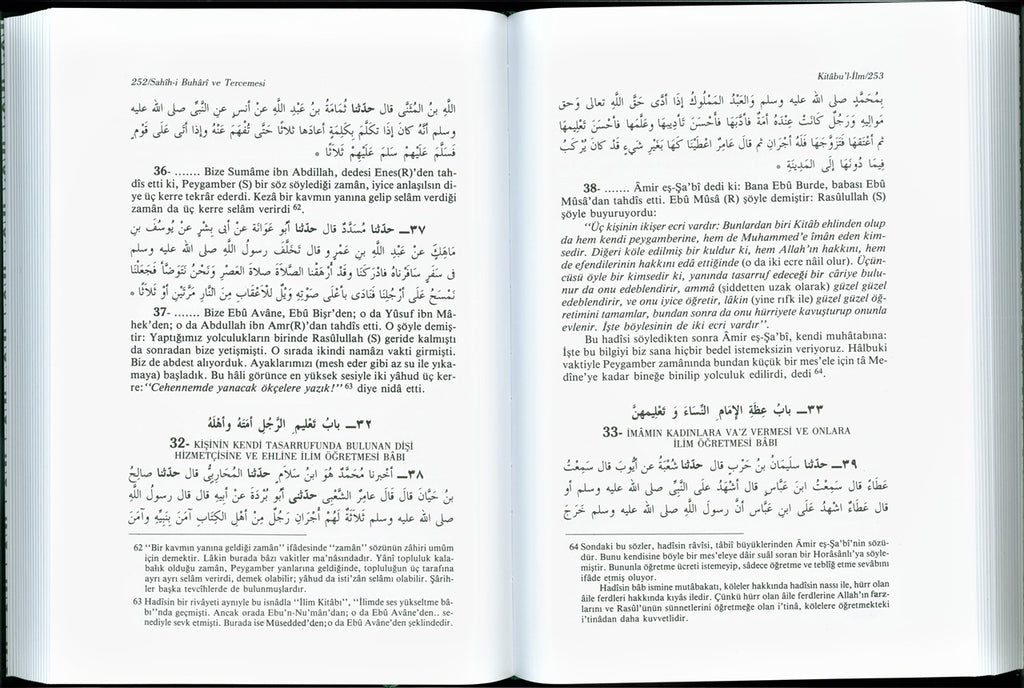 252/Sahîh-i Buhârî ve Tercemesi
اللَّهِ بنُ الْمُثَنَّى قال حدّثنا ثُمَامَةُ بنُ عَبْدِ اللَّهِ عنْ أنسٍ عنِ النَّبِّى صلى الله عليه
وسلم أنَّهُ كانَ إذَا تَكَلَّمَ بِكَلِمَةٍ أعادَها ثَلاثًا حَتَّى تُفْهَمَ عَنْهُ وإذا أتَى عَلَى قَوْمٍ
فَسَلَّمَ عَلَيْهِمْ سَلَّمَ عَلَيْهِمْ ثَلَاثًا ٭
36- ....... Bize Sumâme ibn Abdillah, dedesi Enes(R)'den tah-
dîs etti ki, Peygamber (S) bir söz söylediği zamân, iyice anlaşılsın di-
ye üç kerre tekrâr ederdi. Kezâ bir kavmın yanına gelip selâm verdiği
zamân da üç kerre selâm verirdi 62.
٣٧ـــ حدّثنا مُسَدَّدٌ قال حدّثنا أبُو عَوَانَةَ عن أبى بِشْرٍ عنْ يُوسُفَ بنِ
مَاهِكَ عنْ عَبْدِ اللَّهِ بنِ عَمْرٍو قال تَخَلَّفَ رسولُ اللَّهِ صلى الله عليه وسلم
فى سَفَرٍ سافَرْناهُ فأدْرَكَنا وقَدْ أرْهَقْنا الصَّلَاةَ صلاةَ العَصْرِ ونَحْنُ نَتَوَضَّأُ فَجَعَلْنا
نَمْسَحُ عَلَى أرْجُلِنَا فَنَادَى بأعْلَى صَوْتِهِ وَيْلٌ للأَعْقابِ مِنَ النَّارِ مَرَّتَيْنِ أوْ ثَلَاثًا ٭
37- ....... Bize Ebû Avâne, Ebû Bişr'den; o da Yûsuf ibn Mâ-
hek'den; o da Abdullah ibn Amr(R)'dan tahdîs etti. O şöyle demiş-
tir: Yaptığımız yolculukların birinde Rasûlullah (S) geride kalmıştı
da sonradan bize yetişmişti. O sırada ikindi namâzı vakti girmişti.
Biz de abdest alıyorduk. Ayaklarımızı (mesh eder gibi az su ile yıka-
maya) başladık. Bu hâli görünce en yüksek sesiyle iki yâhud üç ker-
re: "Cehennemde yanacak ökçelere yazık!" 63 diye nidâ etti.
٣٢ـــ بابُ تَعْلِيمِ الرَّجُلِ أمَتَهُ وأهْلَهُ
32- KİŞİNİN KENDİ TASARRUFUNDA BULUNAN DİŞİ
HİZMETÇİSİNE VE EHLİNE İLİM ÖĞRETMESİ BÂBI
٣٨ـــ أخبرنا مُحَمَّدٌ هُوَ ابنُ سَلَامٍ حدّثنا المُحَارِبِىُّ قال حدّثنا صالحُ
بنُ حَيَّانَ قال قالَ عامِرٌ الشَّعْبِىُّ حدّثنى أبُو بُرْدَةَ عنْ أبِيهِ قال قال رسولُ اللَّهِ
صلى الله عليه وسلم ثَلَاثَةٌ لَهُمْ أجْرَانِ رَجُلٌ مِنْ أهْلِ الكِتَابِ آمَنَ بِنَبِيِّهِ وآمَنَ
62 "Bir kavmın yanına geldiği zamân" ifâdesinde "zamân" sözünün zâhiri umûm
için demektir. Lâkin burada bâzı vakitler ma'nâsındadır. Yânî topluluk kala-
balık olduğu zamân, Peygamber yanlarına geldiğinde, topluluğun üç tarafına
ayrı ayrı selâm verirdi, demek olabilir; yâhud da isti'zân selâmı olabilir. Şârih-
ler başka tevcîhlerde de bulunmuşlardır.
63 Hadîsin bir rivâyeti aynıyle bu isnâdla "İlim Kitâbı", "İlimde ses yükseltme bâ-
bı"nda geçmişti. Ancak orada Ebu'n-Nu'mân'dan; o da Ebû Avâne'den.. se-
nediyle sevk etmişti. Burada ise Müsedded'den; o da Ebû Avâne'den şeklindedir.
Kitâbu'l-İlm/253
بِمُحَمَّدٍ صلى الله عليه وسلم وَالعَبْدُ المَمْلُوكُ إذَا أدَّى حَقَّ اللَّهِ تعالى وَحق
مَوالِيهِ وَرَجُلٌ كانَتْ عِنْدَهُ أمَةٌ فأدَّبَهَا فأحْسَنَ تأدِيبَها وعَلَّمَها فأحْسَنَ تَعْلِيمَها
ثم أعْتَقَهَا فَتَزَوَّجَها فَلَهُ أجْرَانِ ثم قال عَامِرٌ اعْطَيْنَا كَهَا بَغَيْرِ شىءٍ قَدْ كانَ يُرْكَبُ
فِيمَا دُونَهَا إلى المَدِينَةِ ٭
38- ....... Âmir eş-Şa'bî dedi ki: Bana Ebû Burde, babası Ebû
Mûsâ'dan tahdîs etti. Ebû Mûsâ (R) şöyle demiştir: Rasûlullah (S)
şöyle buyuruyordu:
"Üç kişinin ikişer ecri vardır: Bunlardan biri Kitâb ehlinden olup
da hem kendi peygamberine, hem de Muhammed'e îmân eden kim-
sedir. Diğeri köle edilmiş bir kuldur ki, hem Allah'ın hakkını, hem
de efendilerinin hakkını edâ ettiğinde (o da iki ecre nâil olur). Üçün-
cüsü öyle bir kimsedir ki, yanında tasarruf edeceği bir câriye bulu-
nur da onu edeblendirir, ammâ (şiddetten uzak olarak) güzel güzel
edeblendirir, ve onu iyice öğretir, lâkin (yine rıfk ile) güzel güzel öğ-
retimini tamamlar, bundan sonra da onu hürriyete kavuşturup onunla
evlenir. İşte böylesinin de iki ecri vardır".
Bu hadîsi söyledikten sonra Âmir eş-Şa'bî, kendi muhâtabına:
İşte bu bilgiyi biz sana hiçbir bedel istemeksizin veriyoruz. Hâlbuki
vaktiyle Peygamber zamânında bundan küçük bir mes'ele için tâ Me-
dîne'ye kadar bineğe binilip yolculuk edilirdi, dedi 64.
٣٣ـــ بابُ عِظَةِ الإمَامِ النِّسَاءَ وَ تَعْلِيمِهِنَّ
33- İMÂMIN KADINLARA VA'Z VERMESİ VE ONLARA
İLİM ÖĞRETMESİ BÂBI
٣٩ـــ حدّثنا سُلَيمَانُ بنُ حَرْبٍ قال حدّثنا شُعْبَةُ عن أيُّوبَ قال سَمِعْتُ
عَطَاءً قال سَمِعْتُ ابنَ عَبَّاسٍ قال أشْهَدُ عَلَى النَّبِّى صلى الله عليه وسلم أو
قال عَطَاءٌ اشْهَدُ عَلَى ابنِ عَبَّاسٍ أنَّ رسولَ اللَّهِ صلى الله عليه وسلم خَرَجَ
64 Sondaki bu sözler, hadîsin râvîsi, tâbiî büyüklerinden Âmir eş-Şa'bî'nin sözü-
dür. Bunu kendisine böyle bir mes'eleye dâir suâl soran bir Horâsânlı'ya söyle-
miştir. Bununla öğretme ücreti istemeyip, sâdece öğretme ve teblîğ etme sevâbını
ifâde etmiş oluyor.
Hadîsin bâb ismine mutâbakatı, köleler hakkında hadîsin nassı ile, hürr olan
âile ferdleri hakkında kıyâs iledir. Çünkü hürr olan âile ferdlerine Allah'ın farz-
larını ve Rasûl'ünün sünnetlerini öğretmeğe olan i'tinâ, kölelere öğretmekteki
i'tinâdan daha kuvvetlidir.